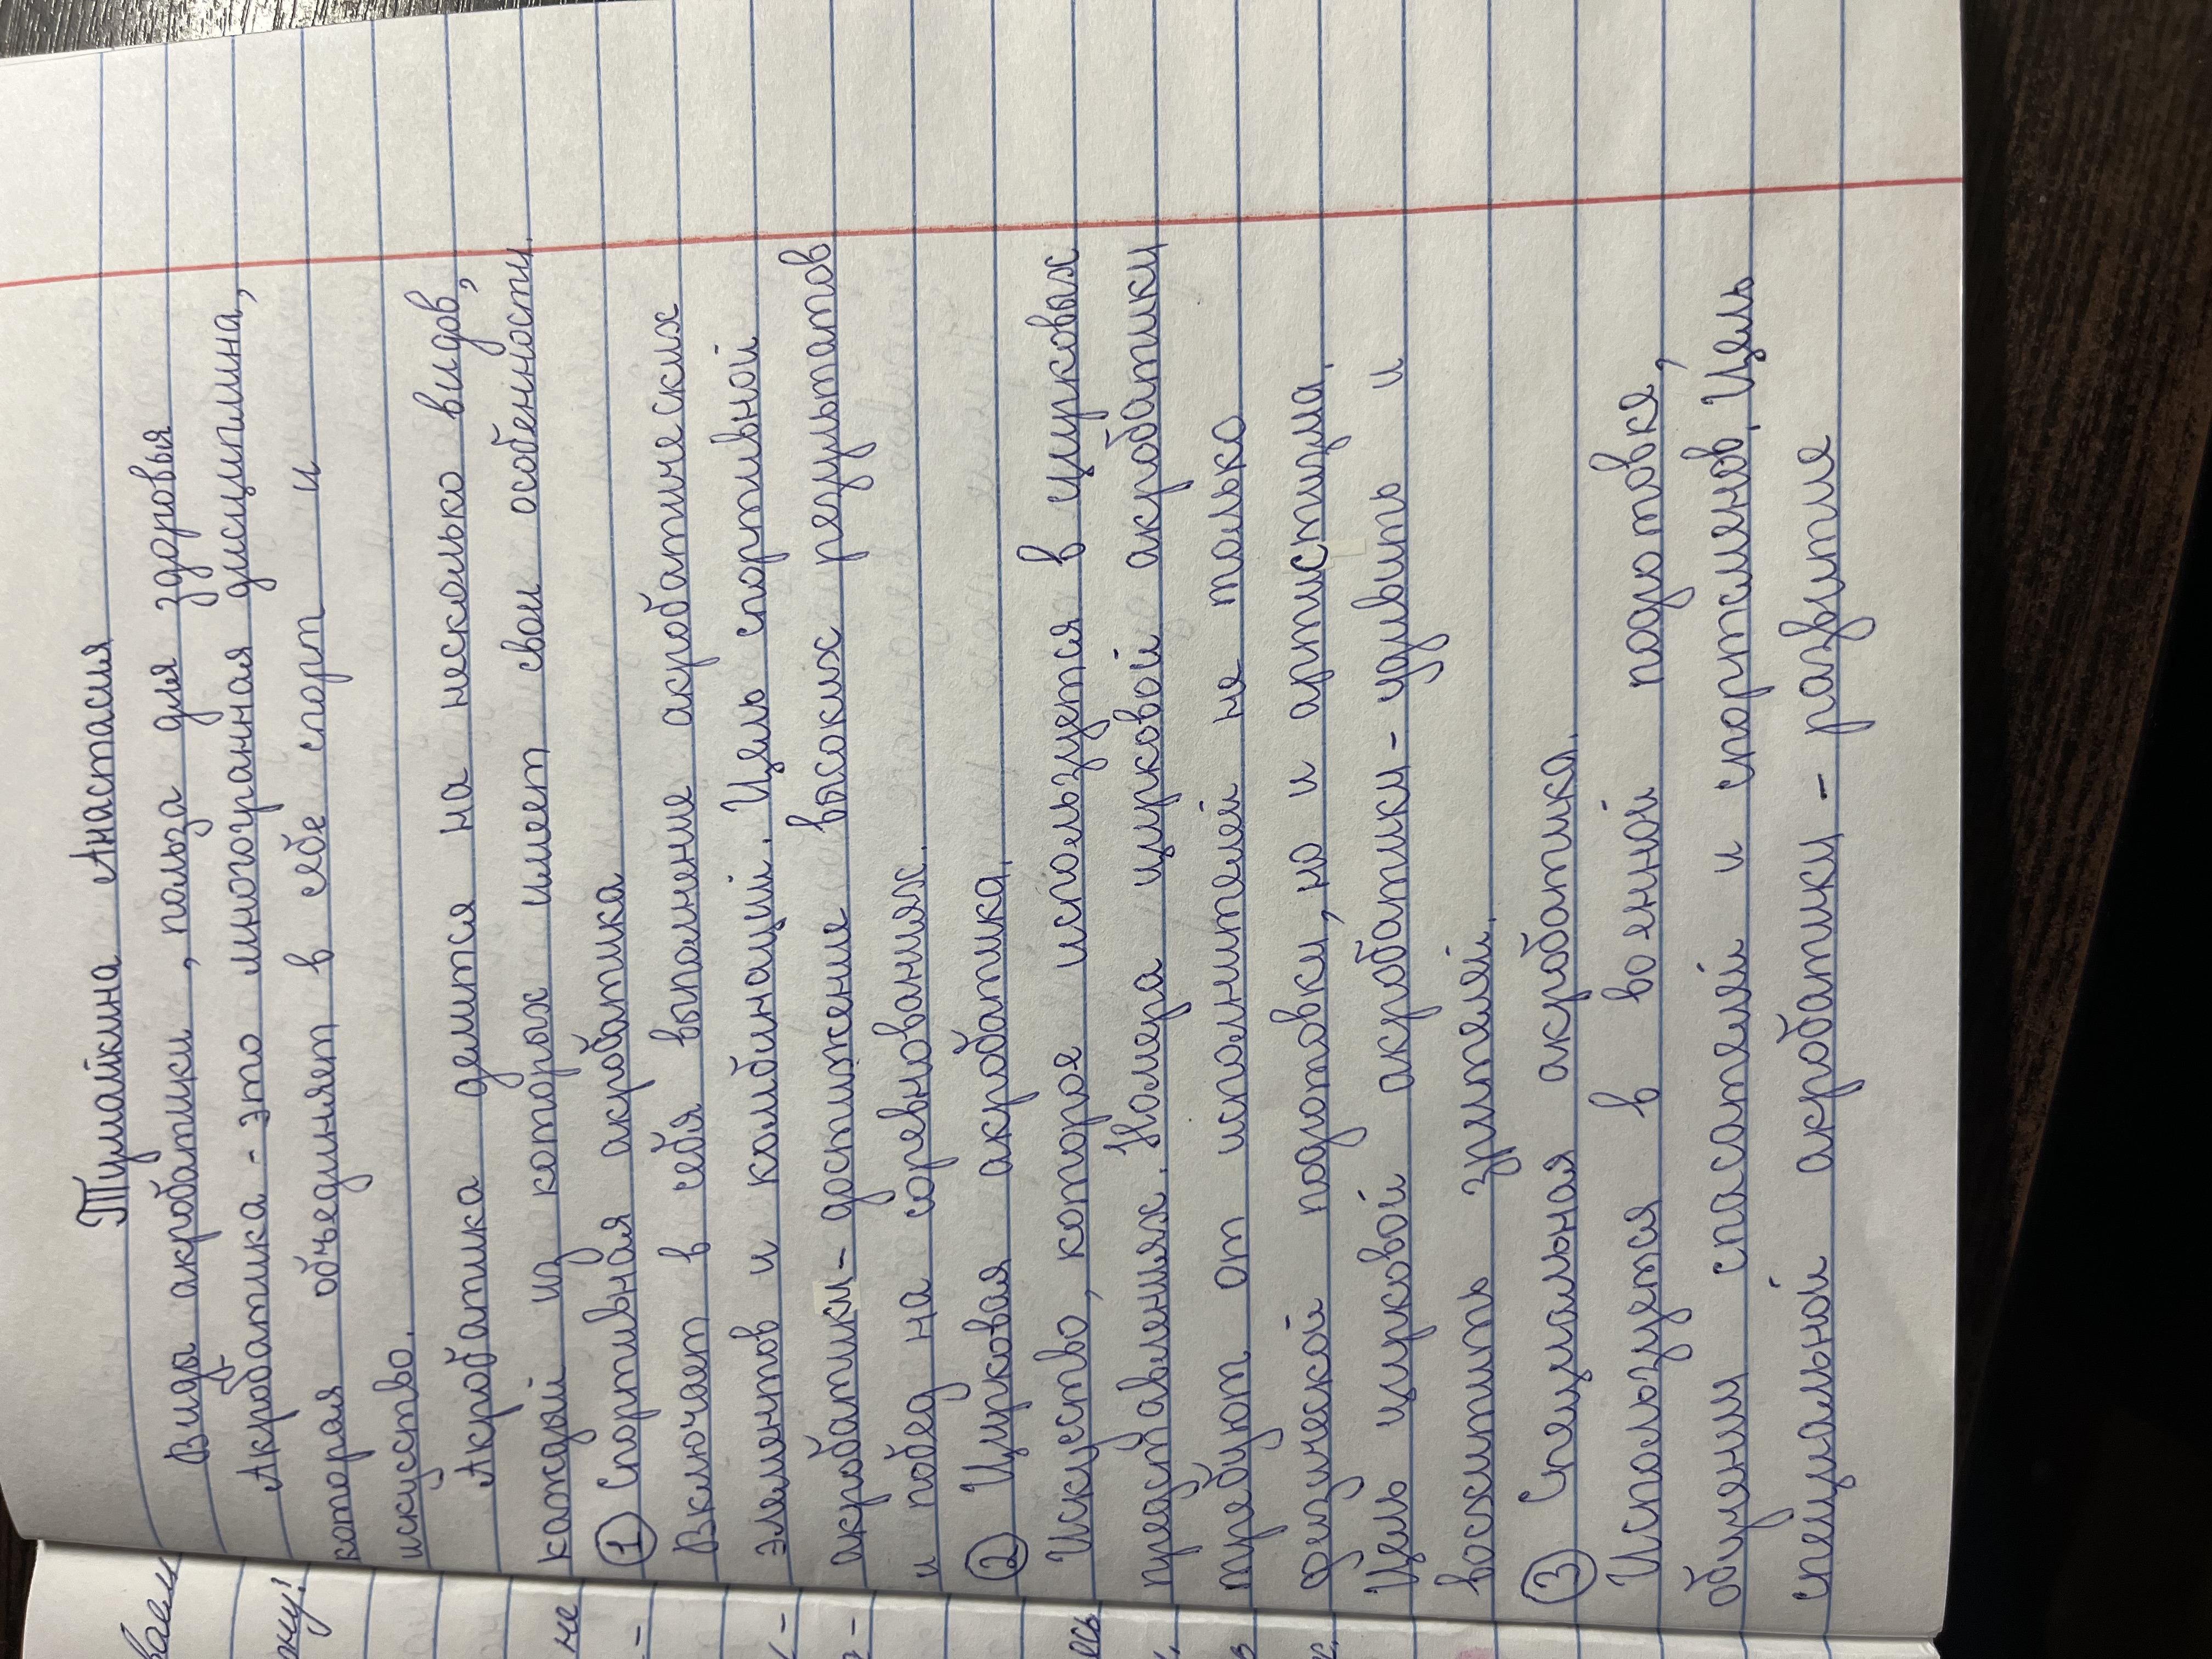 Тумайкина Анастасия
Виды акробатики, польза для здоровья
Акробатика - это многогранная дисциплина,
которая объединяет в себе спорт и
искусство.
Акробатика делится на несколько видов,
каждый из которых имеет свои особенности.
① Спортивная акробатика
Включает в себя выполнение акробатических
элементов и комбинаций. Цель спортивной
акробатики - достижение высоких результатов
и побед на соревнованиях.
② Цирковая акробатика.
Искусство, которое используется в цирковых
представлениях. Номера цирковой акробатики
требуют от исполнителей не только
физической подготовки, но и артистизма.
Цель цирковой акробатики - удивить и
восхитить зрителей.
③ Специальная акробатика.
Используется в военной подготовке,
обучении спасателей и спортсменов. Цель
специальной акробатики - развитие
ваем
ону!
не
-
-
-
есь